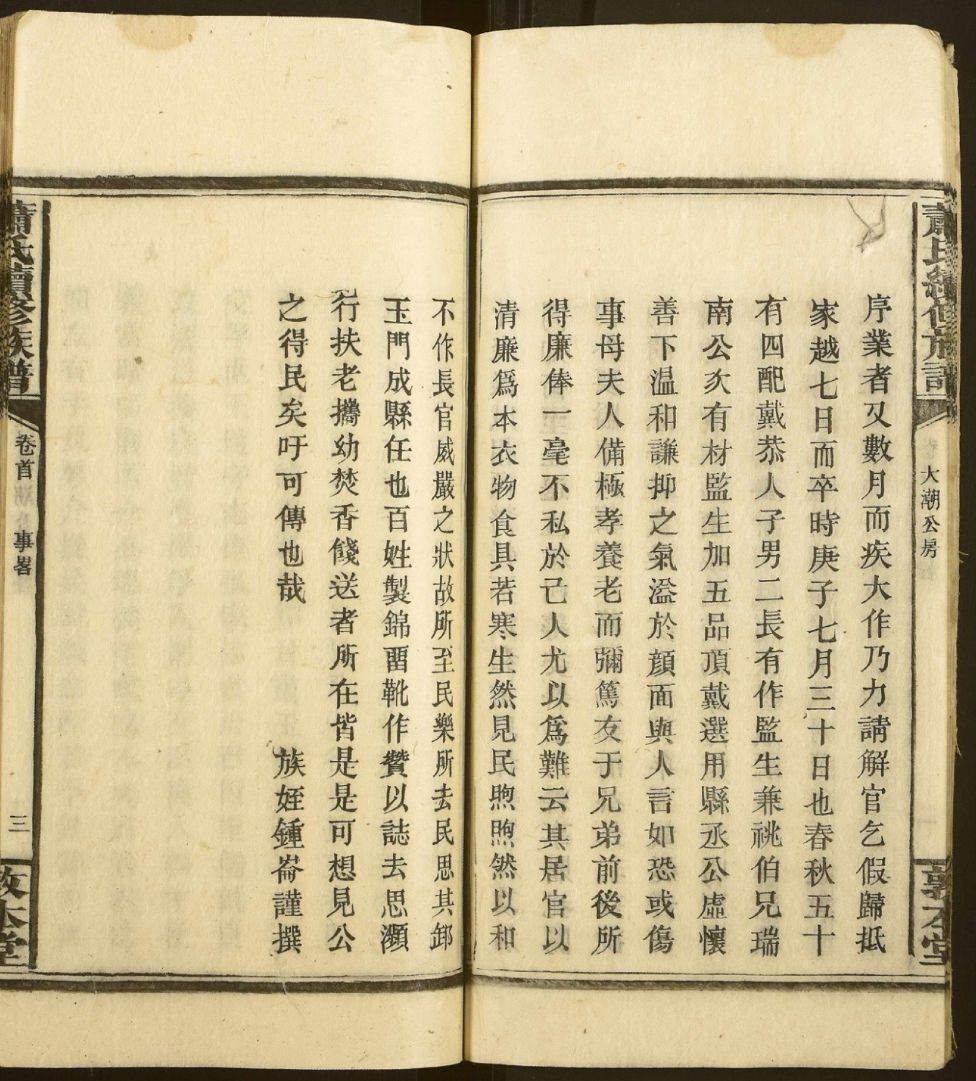 蕭氏續修族譜
大潮公房
敦本堂
序業者又數月而疾大作乃力請解官乞假歸抵
家越七日而卒時庚子七月三十日也春秋五十
有四配戴恭人子男二長有作監生兼祧伯兄瑞
南公次有材監生加五品頂戴選用縣丞公虛懷
善下温和謙抑之氣溢於顔面與人言如恐或傷
事母夫人備極孝養老而彌篤友于兄弟前後所
得廉俸一毫不私於己人尤以爲難云其居官以
清廉爲本衣物食具若寒生然見民煦煦然以和
不作長官威嚴之狀故所至民樂所去民思其卸
玉門成縣任也百姓製錦畱靴作贊以誌去思瀕
行扶老攜幼焚香餞送者所在皆是是可想見公
之得民矣吁可傳也哉
族姪鍾崙謹撰
蕭氏續修族譜
卷首
事畧
三
敦本堂